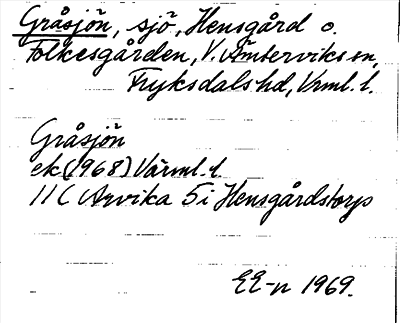 Gråsjön, sjö, Hensgård o.
Folkesgården, V. Ämterviks sn,
Fryksdals hd, Vrml. l.
Gråsjön
ek (1968) Värml. l.
11 C Arvika 5 i Hensgårdstorp
EE-n 1969.